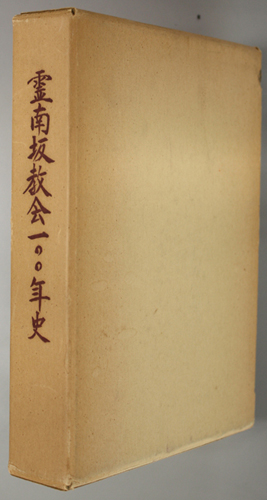 霊南坂教会一〇〇年史